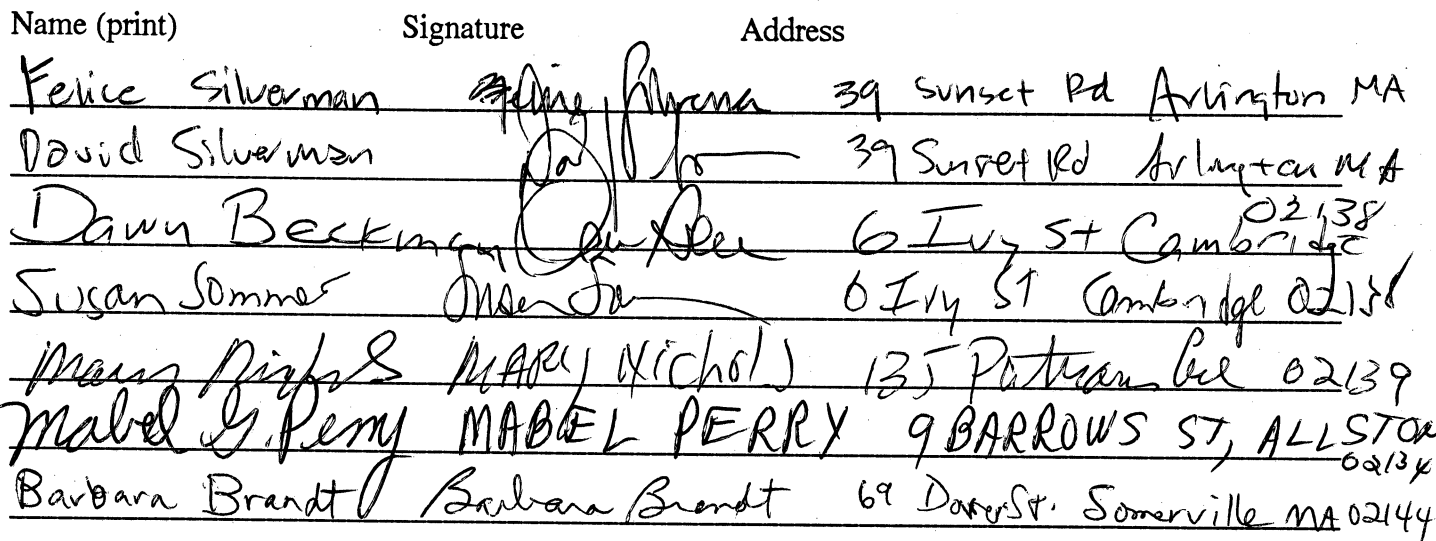 Name (print) Signature Address
Felice Silverman 39 Sunset Rd Arlington MA
David Silverman 39 Sunset Rd Arlington MA
Dawn Beckman 6 Ivy St Cambridge 02138
Susan Sommer Susan 6 Ivy ST Cambridge 02138
Mary Nichols MARY Nichols 135 Putnam Ave 02139
Mabel G. Perry MABEL PERRY 9 BARROWS ST, ALLSTON 02134
Barbara Brandt Barbara Brandt 69 Dover St. Somerville MA 02144